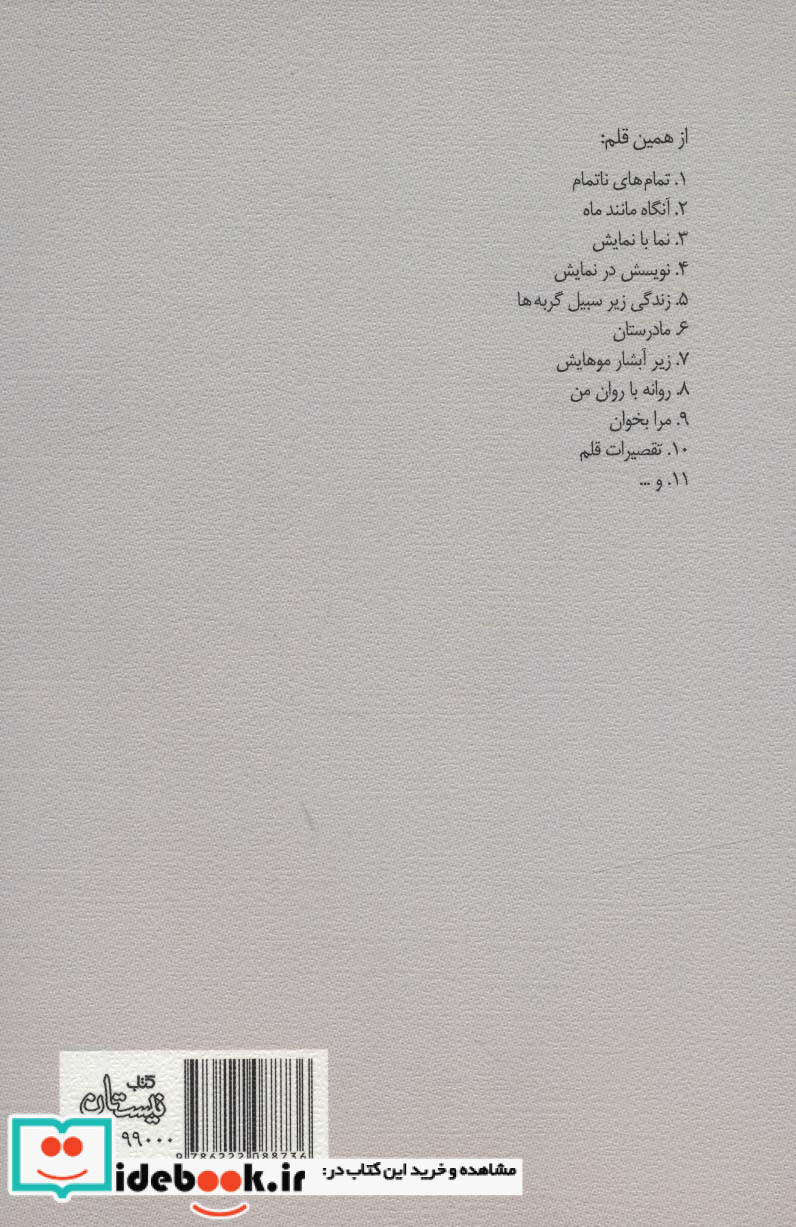 از همین قلم:
۱. تمام‌های ناتمام
۲. آنگاه مانند ماه
۳. نما با نمایش
۴. نویسش در نمایش
۵. زندگی زیر سبیل گربه‌ها
۶. مادرستان
۷. زیر آبشار موهایش
۸. روانه با روان من
۹. مرا بخوان
۱۰. تقصیرات قلم
۱۱. و ...
کتاب
نیستان
۹۹۰۰۰
9 786222 088736
مشاهده و خرید این کتاب در:
idebook.ir